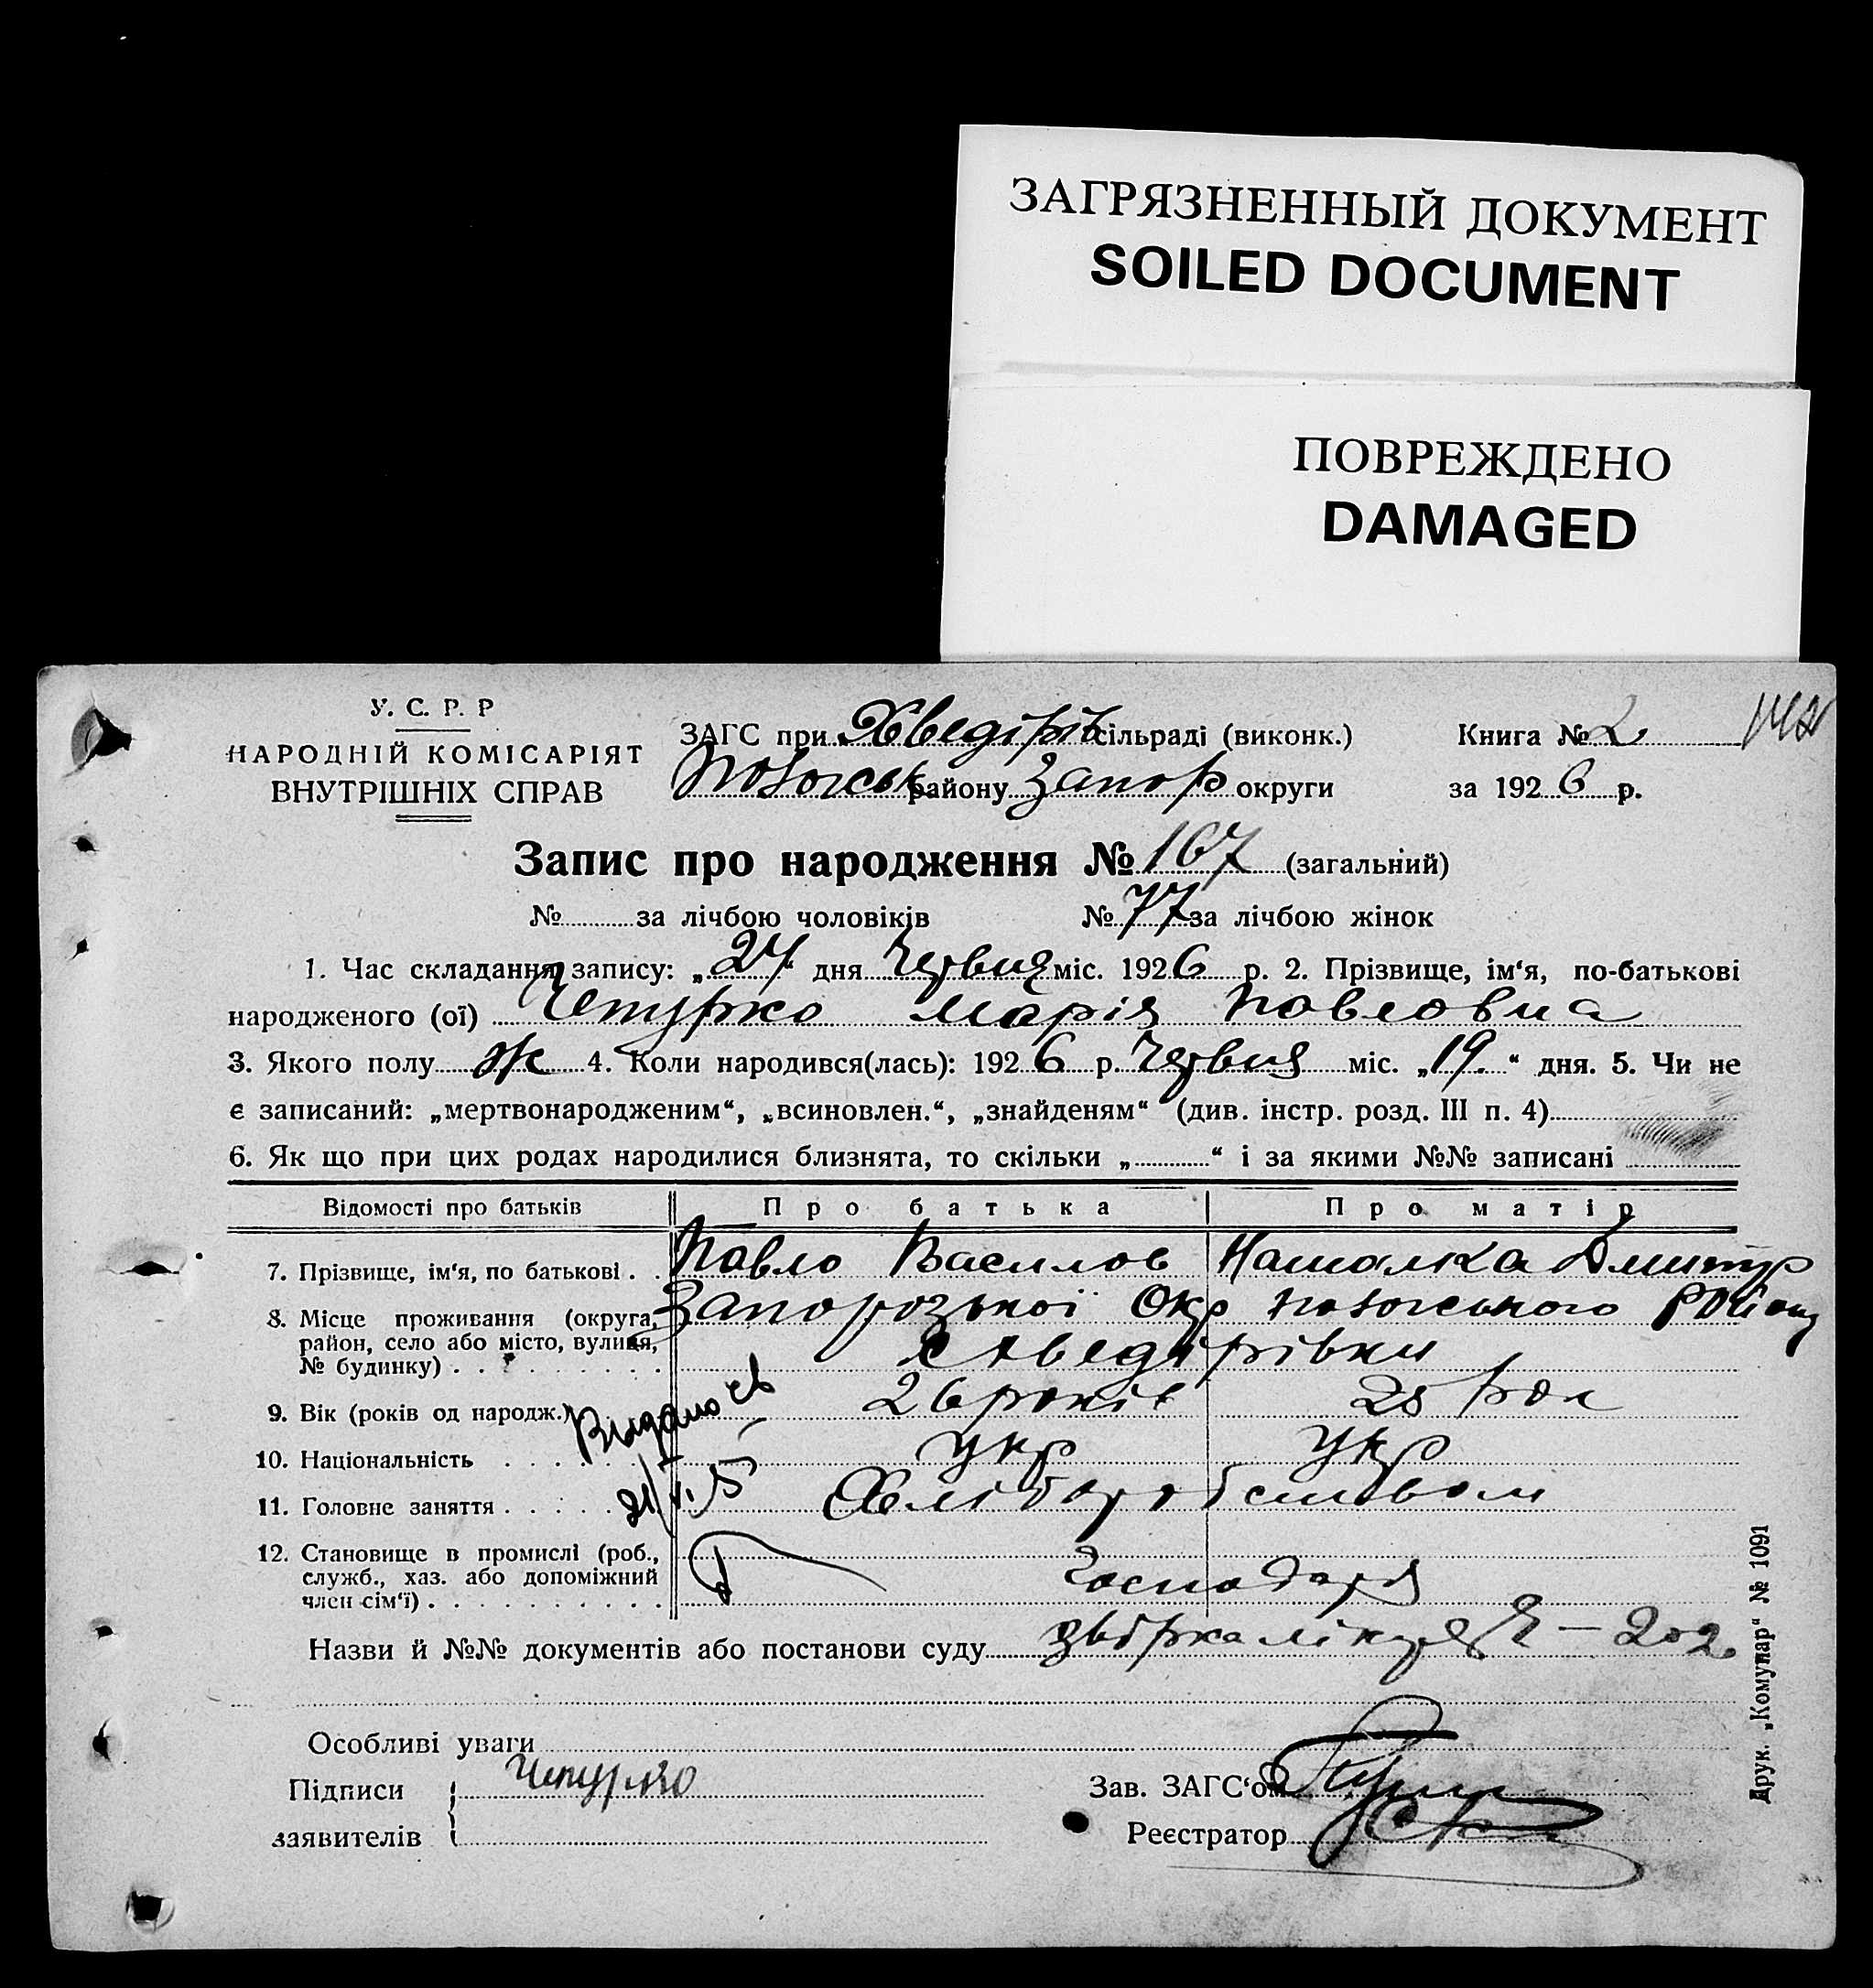 ЗАГРЯЗНЕННЫЙ ДОКУМЕНТ
SOILED DOCUMENT
ПОВРЕЖДЕНО
DAMAGED
У. С. Р. Р
НАРОДНІЙ КОМІСАРІЯТ
ВНУТРІШНІХ СПРАВ
ЗАГС при Хведірів сільраді (виконк.)
району Запор округи
Книга № 2
142
за 1926 р.
Запис про народження № 167 (загальний)
№ за лічбою чоловіків № 77 за лічбою жінок
1. Час складання запису: „27“ дня Червня міс. 1926 р. 2. Прізвище, ім‘я, по-батькові
народженого (ої) Чепурко Марія Павловна
3. Якого полу ж 4. Коли народився(лась): 1926 р. Червня міс. „19.“ дня. 5. Чи не
є записаний: „мертвонародженим“, „всиновлен.“, „знайденям“ (див. інстр. розд. III п. 4)
6. Як що при цих родах народилися близнята, то скільки „ “ і за якими №№ записані
Відомості про батьків Про батька Про матір
7. Прізвище, ім‘я, по батькові . . Павло Василов Наталка Дмитр
8. Місце проживання (округа, Запорозької Окр Району
район, село або місто, вулиця, с Хведірівки
№ будинку) . . . . . . . .
9. Вік (років од народж.) 26 років 25 рок
Видано
10. Національність . . . . . укр укр
11. Головне заняття . . . . . Хліборобством
12. Становище в промислі (роб.,
служб., хаз. або допоміжний Господаря
член сім‘ї) . . . . . . . . . .
Назви й №№ документів або постанови суду — 202
Особливі уваги
Підписи Чепурко
заявителів
Зав. ЗАГС‘ом
Реєстратор
Друк. „Комунар“ № 1091